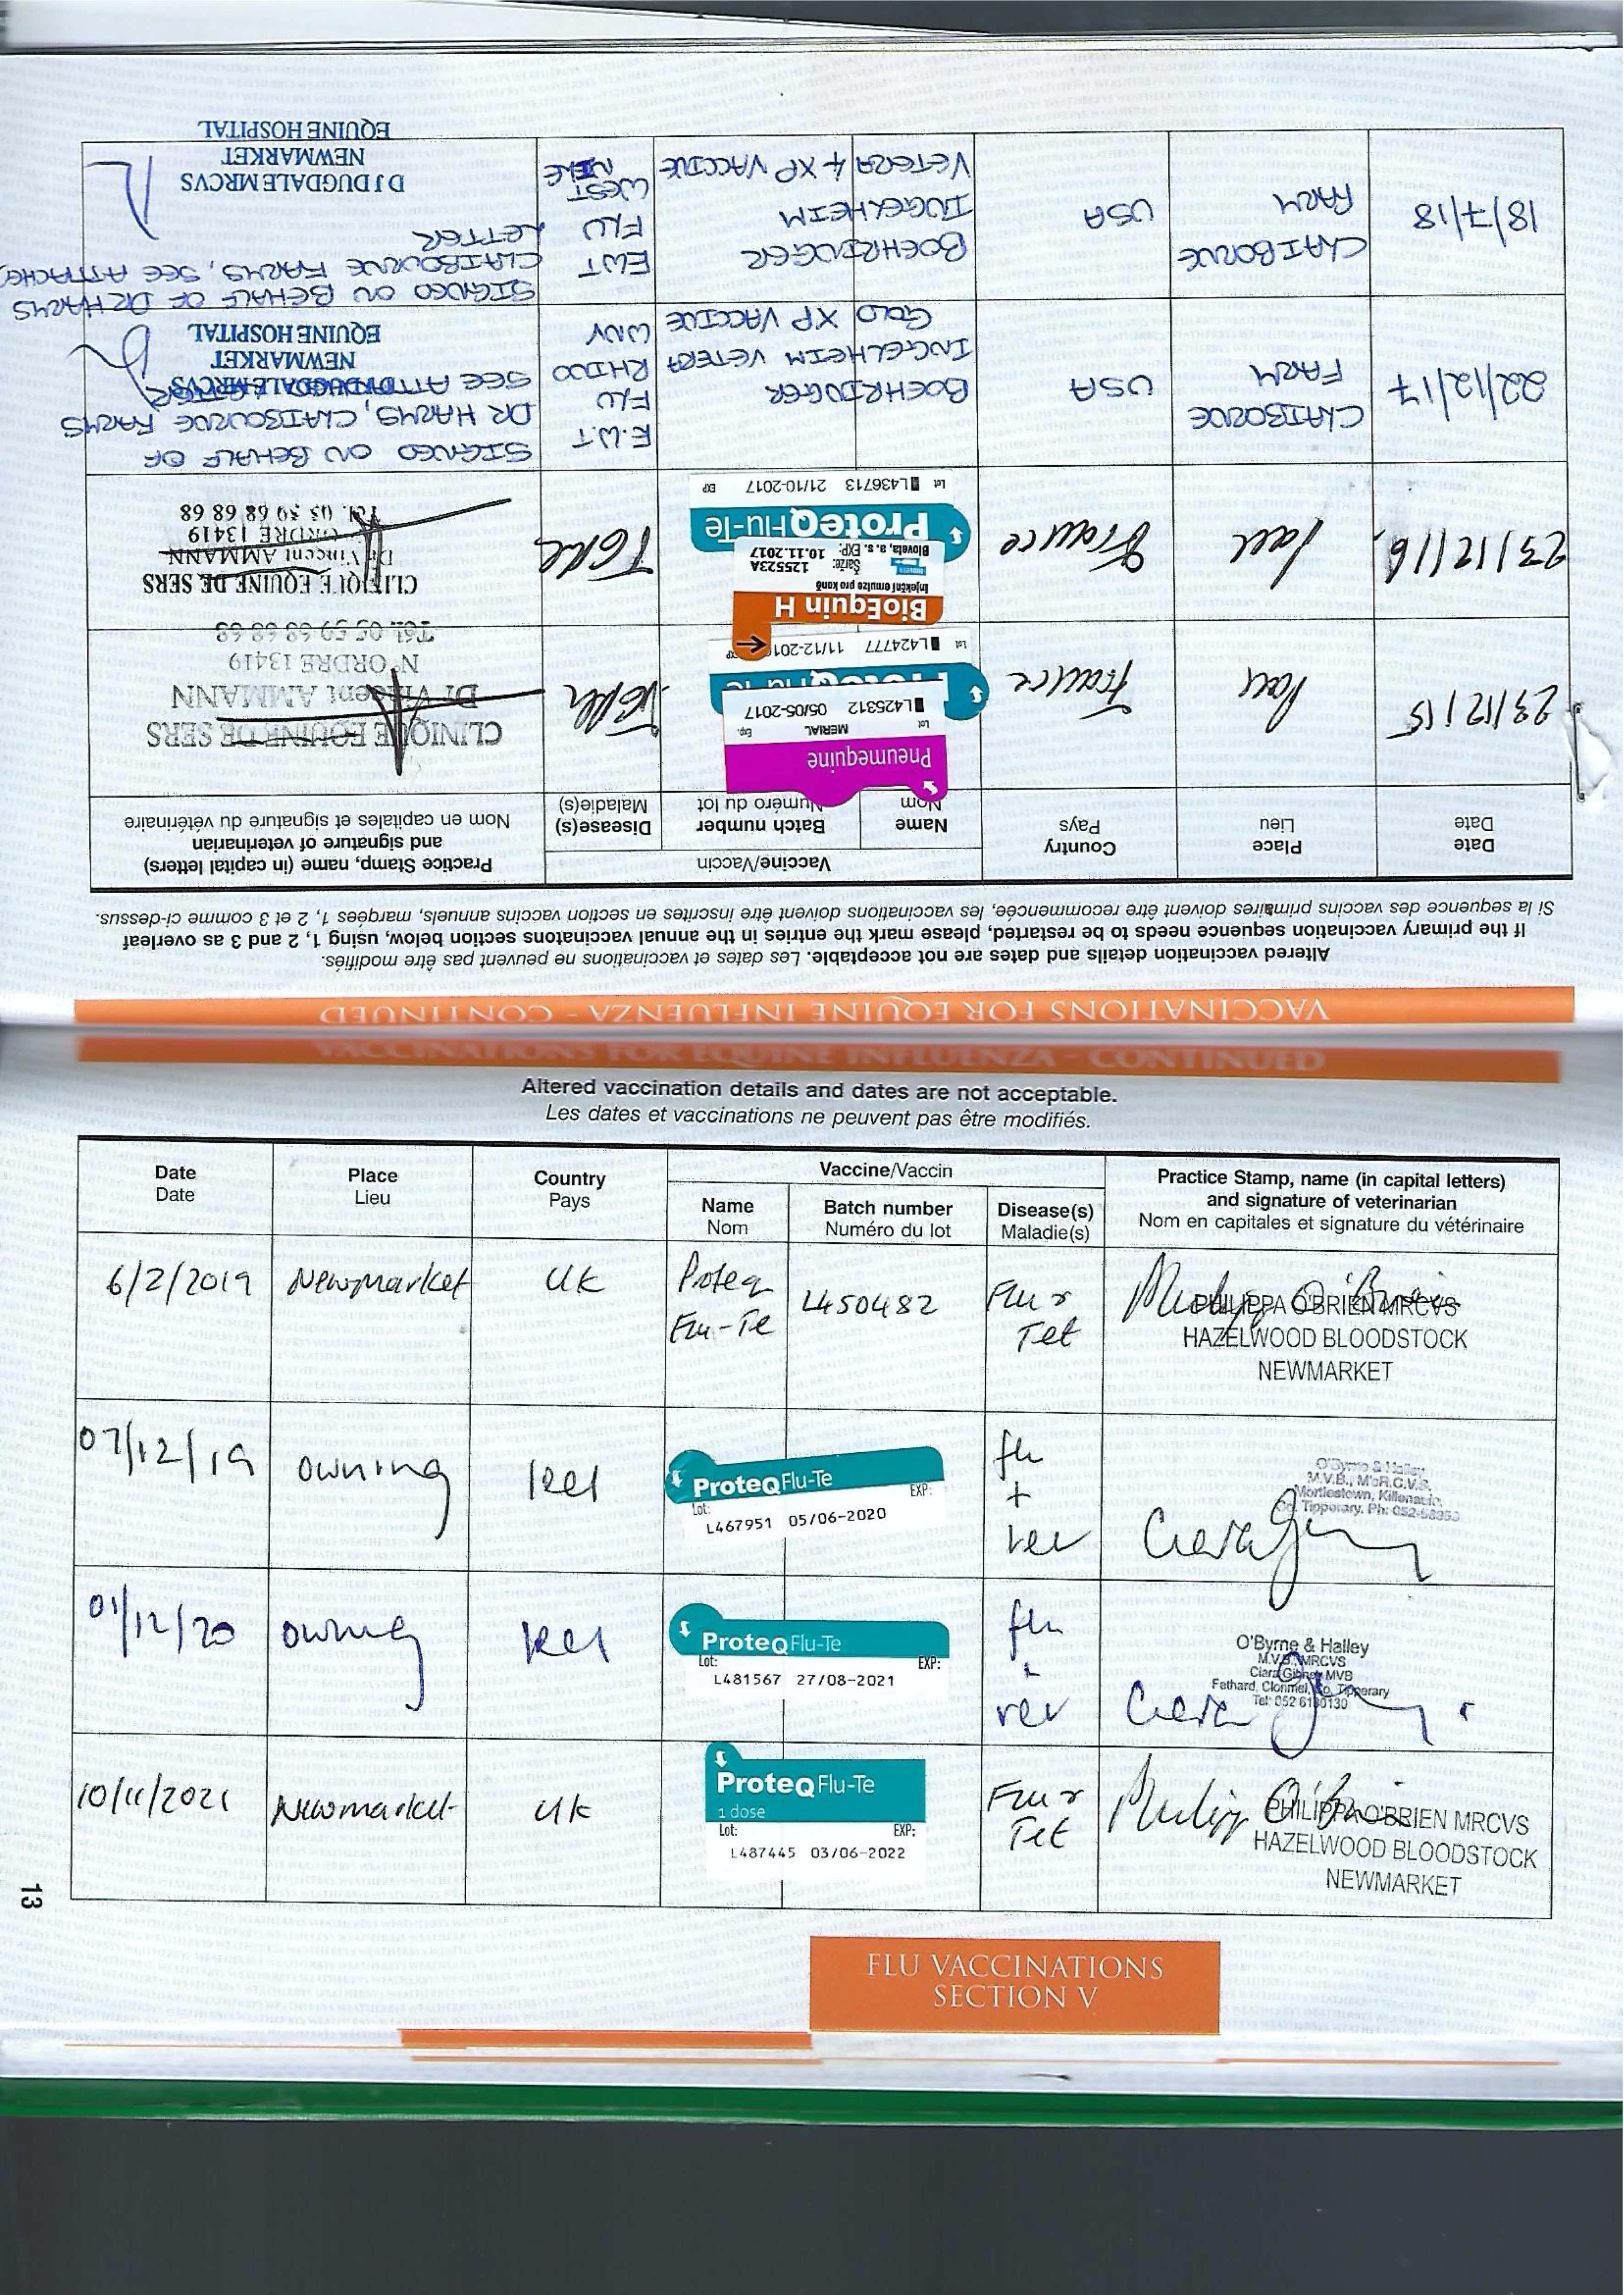 VACCINATIONS FOR EQUINE INFLUENZA - CONTINUED
Altered vaccination details and dates are not acceptable. Les dates et vaccinations ne peuvent pas être modifiés.
If the primary vaccination sequence needs to be restarted, please mark the entries in the annual vaccinatons section below, using 1, 2 and 3 as overleaf
Si la sequence des vaccins primaires doivent être recommencée, les vaccinations doivent être inscrites en section vaccins annuels, marqées 1, 2 et 3 comme ci-dessus.
Date
Date
Place
Lieu
Country
Pays
Vaccine/Vaccin
Name
Nom
Batch number
Numéro du lot
Disease(s)
Maladie(s)
Practice Stamp, name (in capital letters)
and signature of veterinarian
Nom en capitales et signature du vétérinaire
23/12/15
Pau
France
Pneumequine
Lot MERIAL Exp.
L425312 05/05-2017
Lot L424777
CLINIQUE EQUINE DE SERS
Dr Vincent AMMANN
N° ORDRE 13419
Tél. 05 59 68 68 68
23/12/16
Pau
France
BioEquin H
Injekční emulze pro koně
Šarže: 125523A
Bioveta, a. s. EXP: 10.11.2017
ProteqFlu-Te
Lot L436713 21/10-2017 EXP
CLINIQUE EQUINE DE SERS
Dr Vincent AMMANN
ORDRE 13419
Tél. 05 59 68 68 68
22/12/17
CLAIBORNE
FARM
USA
BOEHRINGER
INGELHEIM VETERA
GOLD XP VACCINE
E.W.T
FLU
RHINO
WNV
SIGNED ON BEHALF OF
DR HARMS, CLAIBOURNE FARMS
SEE ATTACHED
DJ DUGDALE MRCVS
NEWMARKET
EQUINE HOSPITAL
18/7/18
CLAIBORNE
FARM
USA
BOEHRINGER
INGELHEIM
VETERA 4 XP VACCINE
EWT
FLU
WEST
NILE
SIGNED ON BEHALF OF DR HARMS
CLAIBOURNE FARMS, SEE ATTACHED
LETTER
D J DUGDALE MRCVS
NEWMARKET
EQUINE HOSPITAL
VACCINATIONS FOR EQUINE INFLUENZA - CONTINUED
Altered vaccination details and dates are not acceptable.
Les dates et vaccinations ne peuvent pas être modifiés.
Date
Date
Place
Lieu
Country
Pays
Vaccine/Vaccin
Name
Nom
Batch number
Numéro du lot
Disease(s)
Maladie(s)
Practice Stamp, name (in capital letters)
and signature of veterinarian
Nom en capitales et signature du vétérinaire
6/2/2019
Newmarket
UK
Proteq
Flu-Te
L450482
Flu &
Tet
PHILIPPA O'BRIEN MRCVS
HAZELWOOD BLOODSTOCK
NEWMARKET
07/12/19
owning
ProteqFlu-Te
Lot: EXP:
L467951 05/06-2020
flu
+
O'Byrne & Halley
M.V.B., M.R.C.V.S.
Mortlestown, Killenaule,
Co. Tipperary. Ph: 052-
01/12/20
owning
ProteqFlu-Te
Lot: EXP:
L481567 27/08-2021
flu
+
O'Byrne & Halley
M.V.B. MRCVS
Ciara Gibney MVB
Fethard, Clonmel, Co. Tipperary
Tel: 052 6130130
10/11/2021
Newmarket
UK
ProteqFlu-Te
1 dose
Lot: EXP:
L487445 03/06-2022
Flu &
Tet
PHILIPPA O'BRIEN MRCVS
HAZELWOOD BLOODSTOCK
NEWMARKET
13
FLU VACCINATIONS
SECTION V